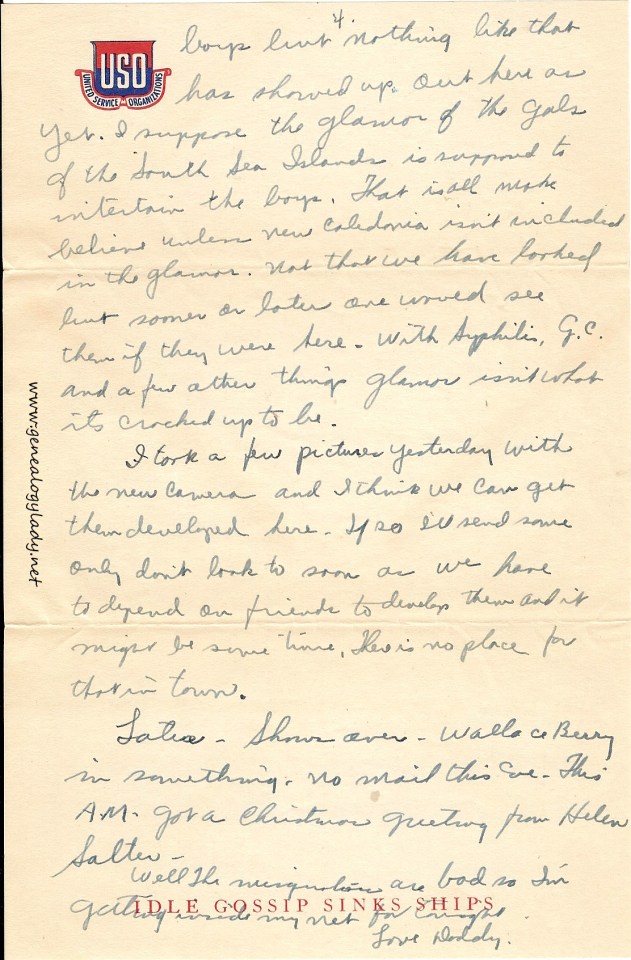 4.
USO
UNITED SERVICE ORGANIZATIONS
boys but nothing like that
has showed up out here as
yet. I suppose the glamor of the gals
of the South Sea Islands is supposed to
intertain the boys. That is all make
believe unless new Caledonia isn't included
in the glamor. Not that we have looked
but sooner or later one would see
them if they were here - With Syphilis, G.C.
and a few other things glamor isn't what
its cracked up to be.
I took a few pictures yesterday with
the new camera and I think we can get
them developed here - If so I'll send some
only don't look to soon as we have
to depend on friends to develop them and it
might be some time. There is no place for
that in town.
Later - Shows over - Wallace Berry
in something. no mail this Eve - This
A.M. got a Christmas greeting from Helen
Salter -
Well the mosquitoes are bad so I'm
getting inside my net for tonight.
IDLE GOSSIP SINKS SHIPS
Love Daddy.
www.genealogylady.net